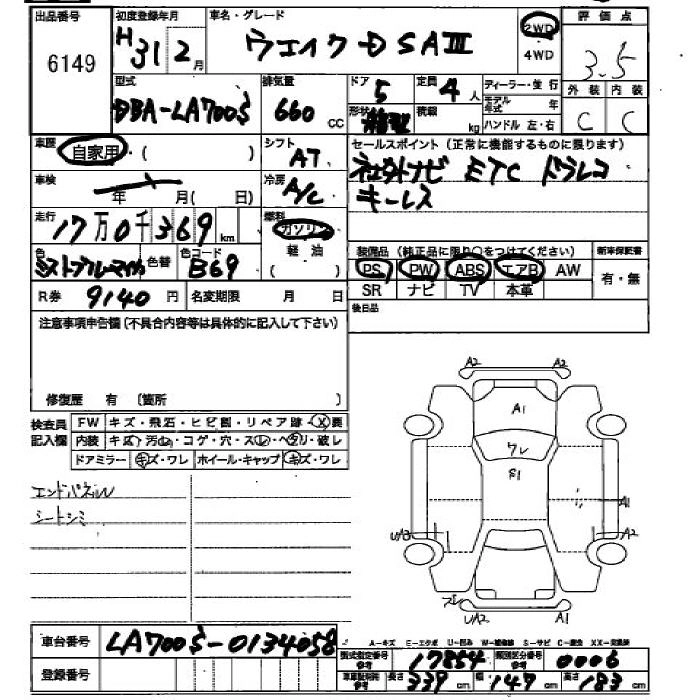 出品番号 初度登録年月 車名・グレード 評価点
6149 H31 2月 ウェイク D SAⅢ 2WD 4WD 3.5
型式 排気量 ドア 定員 ディーラー・並行 外装 内装
DBA-LA700S 660 CC 5 4人 モデル年式 年 C C
形状 積載 kg ハンドル 左・右
車歴 自家用・( ) シフト AT セールスポイント (正常に機能するものに限ります)
社外ナビ ETC ドラレコ
キーレス
車検 年 月(日) 冷房 A/C
走行 17万0千369km 燃料 ガソリン 軽油
色 ミストブルーマイカ 色替 色コード B69
装備品 (純正品に限り○をつけてください) 新車保証書
PS PW ABS エアB AW 有・無
SR ナビ TV 本革
R券 9140円 名変期限 月 日 後日品
注意事項申告欄 (不具合内容等は具体的に記入して下さい)
修復歴 有 〔箇所 〕
検査員記入欄 FW キズ・飛石・ヒビ割・リペア跡・X要
内装 キズ・汚・コゲ・穴・スレ・ヘタリ・破レ
ドアミラー キズ・ワレ ホイール・キャップ キズ・ワレ
エンドパネル
シートシミ
A2 A2
A1
ワレ
A1
U/A3 A2
UA2 A2
車台番号 LA700S-0134058
A-キズ E-エクボ U-凹み S-サビ C-腐蝕
型式指定番号 参考 17854 類別区分番号 参考 0006
登録番号
長さ 339cm 幅 147cm 高さ 183cm